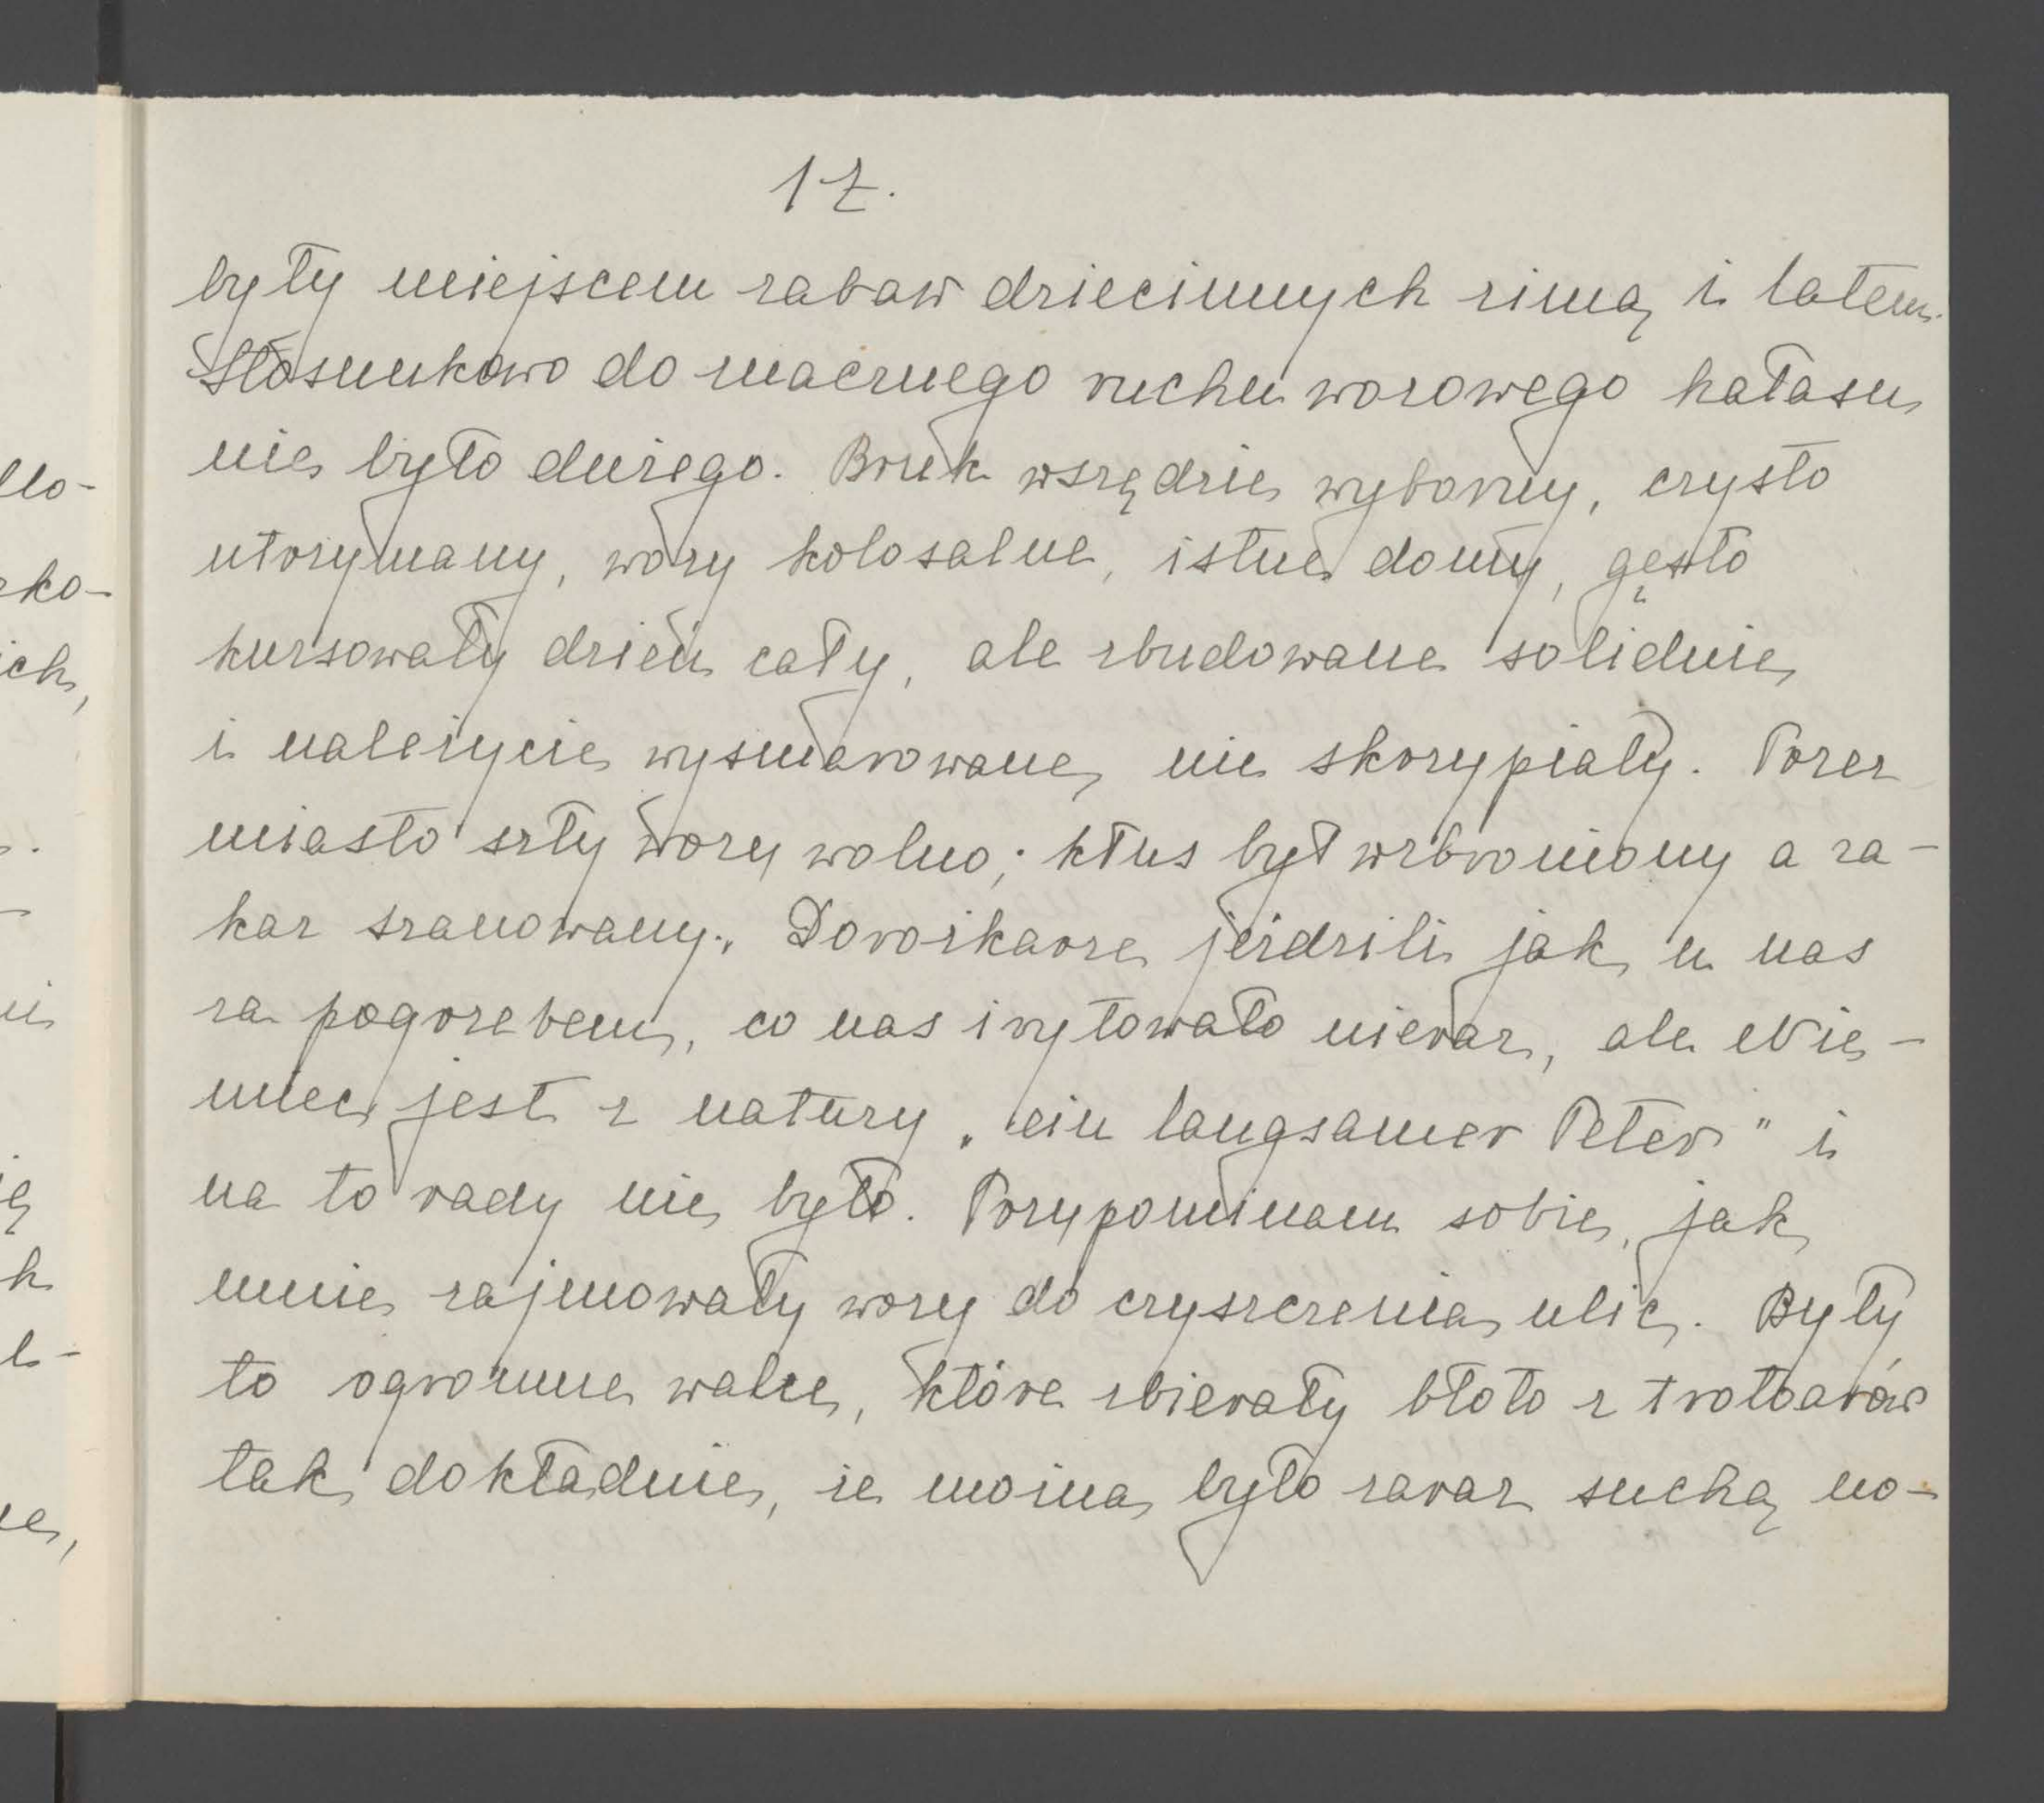 17.
były miejscem zabaw dziecinnych zimą i latem.
Stosunkowo do znacznego ruchu wozowego hałasu
nie było dużego. Bruk wszędzie wyborny, czysto
utrzymany, wozy kolosalne, istne domy, gęsto
kursowały dzień cały, ale zbudowane solidnie
i należycie wysmarowane, nie skrzypiały. Przez
miasto szły wozy wolno; kłus był wzbroniony a za-
kaz szanowany. Dorożkarze jeździli jak u nas
za pogrzebem, co nas irytowało nieraz, ale Nie-
miec jest z natury „ein langsamer Peter" i
na to rady nie było. Przypominam sobie, jak
mnie zajmowały wozy do czyszczenia ulic. Były
to ogromne walce, które zbierały błoto z trotoarów
tak dokładnie, że można było zaraz suchą no-
llo-
ko-
ich,
ią
k
l-